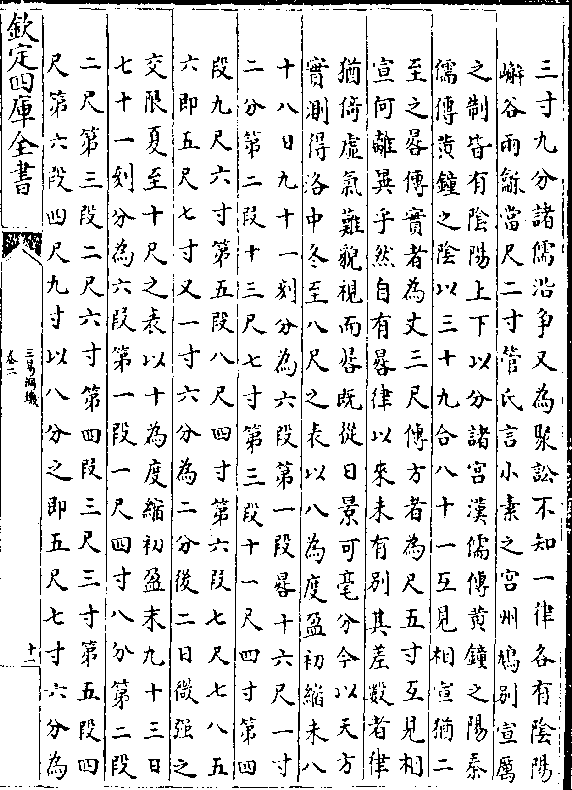 三寸九分諸儒沿争又為聚訟不知一律各有陰陽
嶰谷雨龢當尺二寸管氏言小素之宫州鳩别宣厲
之制皆有陰陽上下以分諸宫漢儒傳黄鐘之陽秦
儒傳黄鐘之陰以三十九合八十一互見相宣猶二
至之晷傳實者為丈三尺傳方者為尺五寸互見相
宣何離異乎然自有晷律以來未有别其差數者律
猶倚虚氣難貌視而晷既從日景可毫分今以天方
實測得洛中冬至八尺之表以八為度盈初縮末八
十八日九十一刻分為六段第一段晷十六尺一寸
二分第二段十三尺七寸第三段十一尺四寸第四
段九尺六寸第五段八尺四寸第六段七尺七八五
六即五尺七寸又一寸六分為二分後二日微强之
交限夏至十尺之表以十為度縮初盈末九十三日
七十一刻分為六段第一段一尺四寸八分第二段
二尺第三段二尺六寸第四段三尺三寸第五段四
尺第六段四尺九寸以八分之即五尺七寸六分為
欽定四庫全書
三易洞璣
卷二
十一